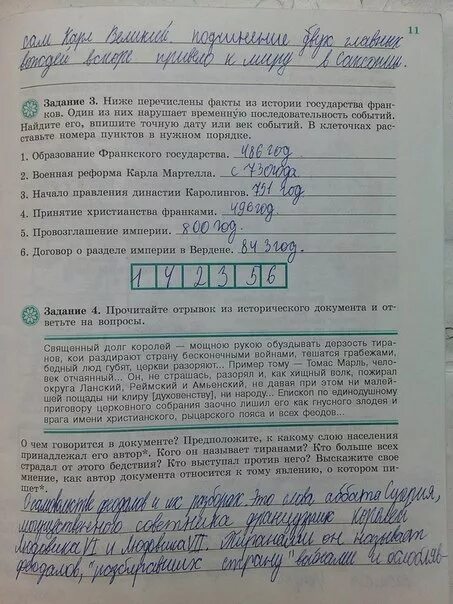 сам Карл Великий, подчинение двух главных
11
вождей вскоре привело к миру в Саксонии.
Задание 3. Ниже перечислены факты из истории государства фран-
ков. Один из них нарушает временную последовательность событий.
Найдите его, впишите точную дату или век событий. В клеточках рас-
ставьте номера пунктов в нужном порядке.
1. Образование Франкского государства. 486 год.
2. Военная реформа Карла Мартелла. с 730 года
3. Начало правления династии Каролингов. 751 год
4. Принятие христианства франками. 496 год.
5. Провозглашение империи. 800 год.
6. Договор о разделе империи в Вердене. 843 год.
1 4 2 3 5 6
Задание 4. Прочитайте отрывок из исторического документа и от-
ветьте на вопросы.
Священный долг королей — мощною рукою обуздывать дерзость тира-
нов, кои раздирают страну бесконечными войнами, тешатся грабежами,
бедный люд губят, церкви разоряют... Пример тому — Томас Марль, чело-
век отчаянный... Он, не страшась, разорял и, как хищный волк, пожирал
округа Ланский, Реймский и Амьенский, не давая при этом ни малей-
шей пощады ни клиру [духовенству], ни народу... Епископ по единодушному
приговору церковного собрания заочно лишил его как гнусного злодея и
врага имени христианского, рыцарского пояса и всех феодов...
О чем говорится в документе? Предположите, к какому слою населения
принадлежал его автор*. Кого он называет тиранами? Кто больше всех
страдал от этого бедствия? Кто выступал против него? Выскажите свое
мнение, как автор документа относится к тому явлению, о котором пи-
шет*.
О самоуправстве феодалов и их раздорах. Это слова аббата Сугерия,
могущественного советника французских королей
Людовика VI и Людовика VII. Тиранами он называет
феодалов, "раздиравших страну" войнами и ослабляв-